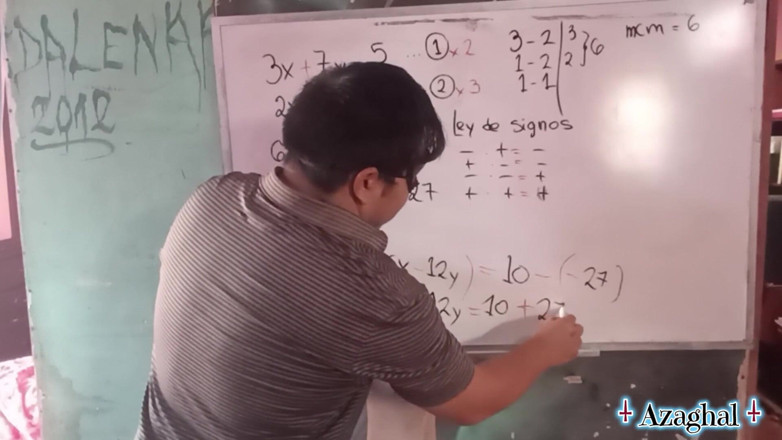 DALENKA
2012
3x + 7y = 5 ... ① x 2
② x 3
3 - 2 | 3
1 - 2 | 2 } 6
1 - 1 |
mcm = 6
Ley de signos
- · + = -
+ · - = -
- · - = +
+ · + = +
27
x - 12y) = 10 - (- 27)
12y = 10 + 27
Azaghal